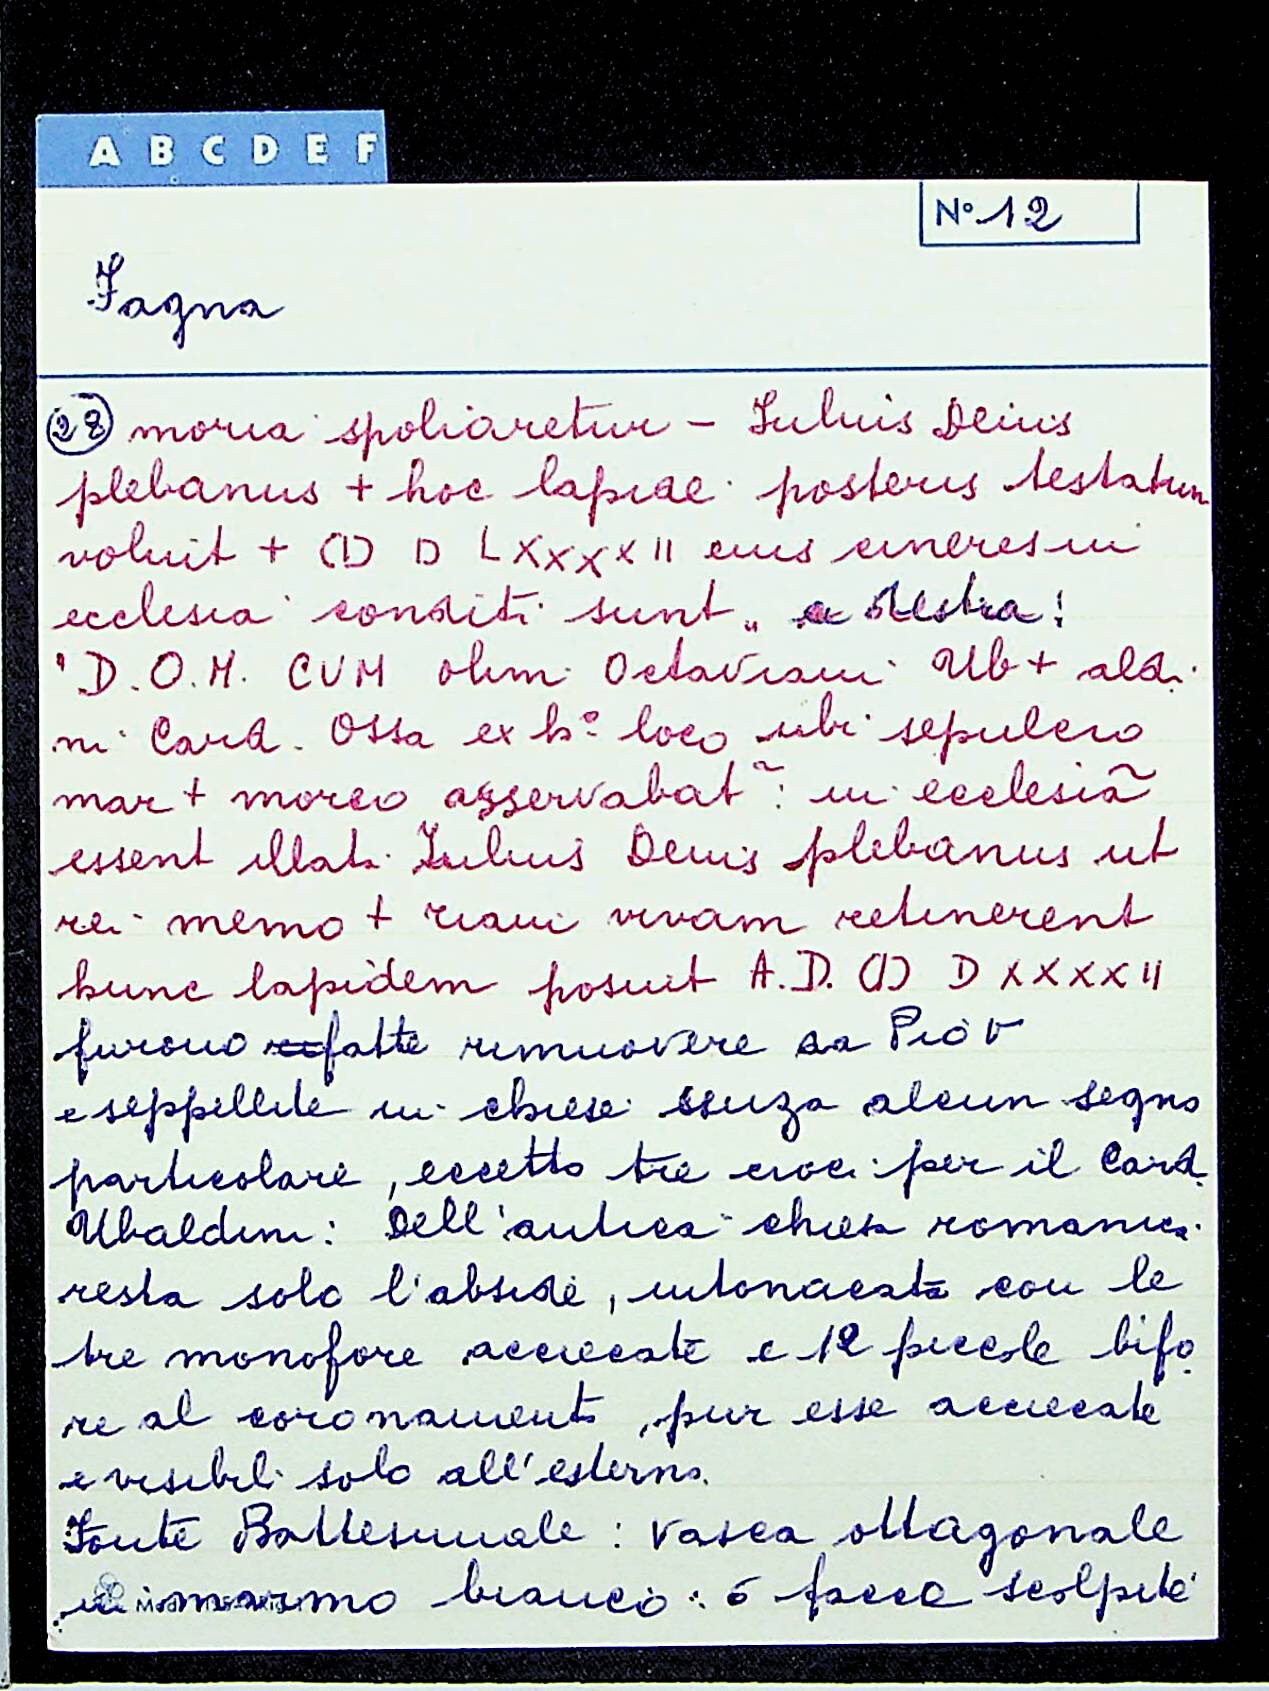 A B C D E F
N° 12
Fagna
(28) moria spoliaretur - Iulius Deius
plebanus + hoc lapide posteris testatum
voluit + (I) D LXXXXII eius cineres in
ecclesia conditi sunt„ a destra:
"D.O.M. CUM olim Octaviani Ub + aldi
ni Card. Ossa ex h° loco ubi sepulcro
mar + moreo asservabat~: in ecclesiã
essent illata Iulius Deius plebanus ut
rei memo + riam vivam retinerent
hunc lapidem posuit A.D. (I) D XXXXII
furono fatte rimuovere da Pio V
e seppellite in chiesa senza alcun segno
particolare, eccetto tre croci per il Card.
Ubaldini: Dell'antica chiesa romanica
resta solo l'abside, intonacata con le
tre monofore accecate e 12 piccole bifo
re al coronamento, pur esse accecate
e visibili solo all'esterno.
Fonte Battesimale: vasca ottagonale
in marmo bianco: 6 facce scolpite